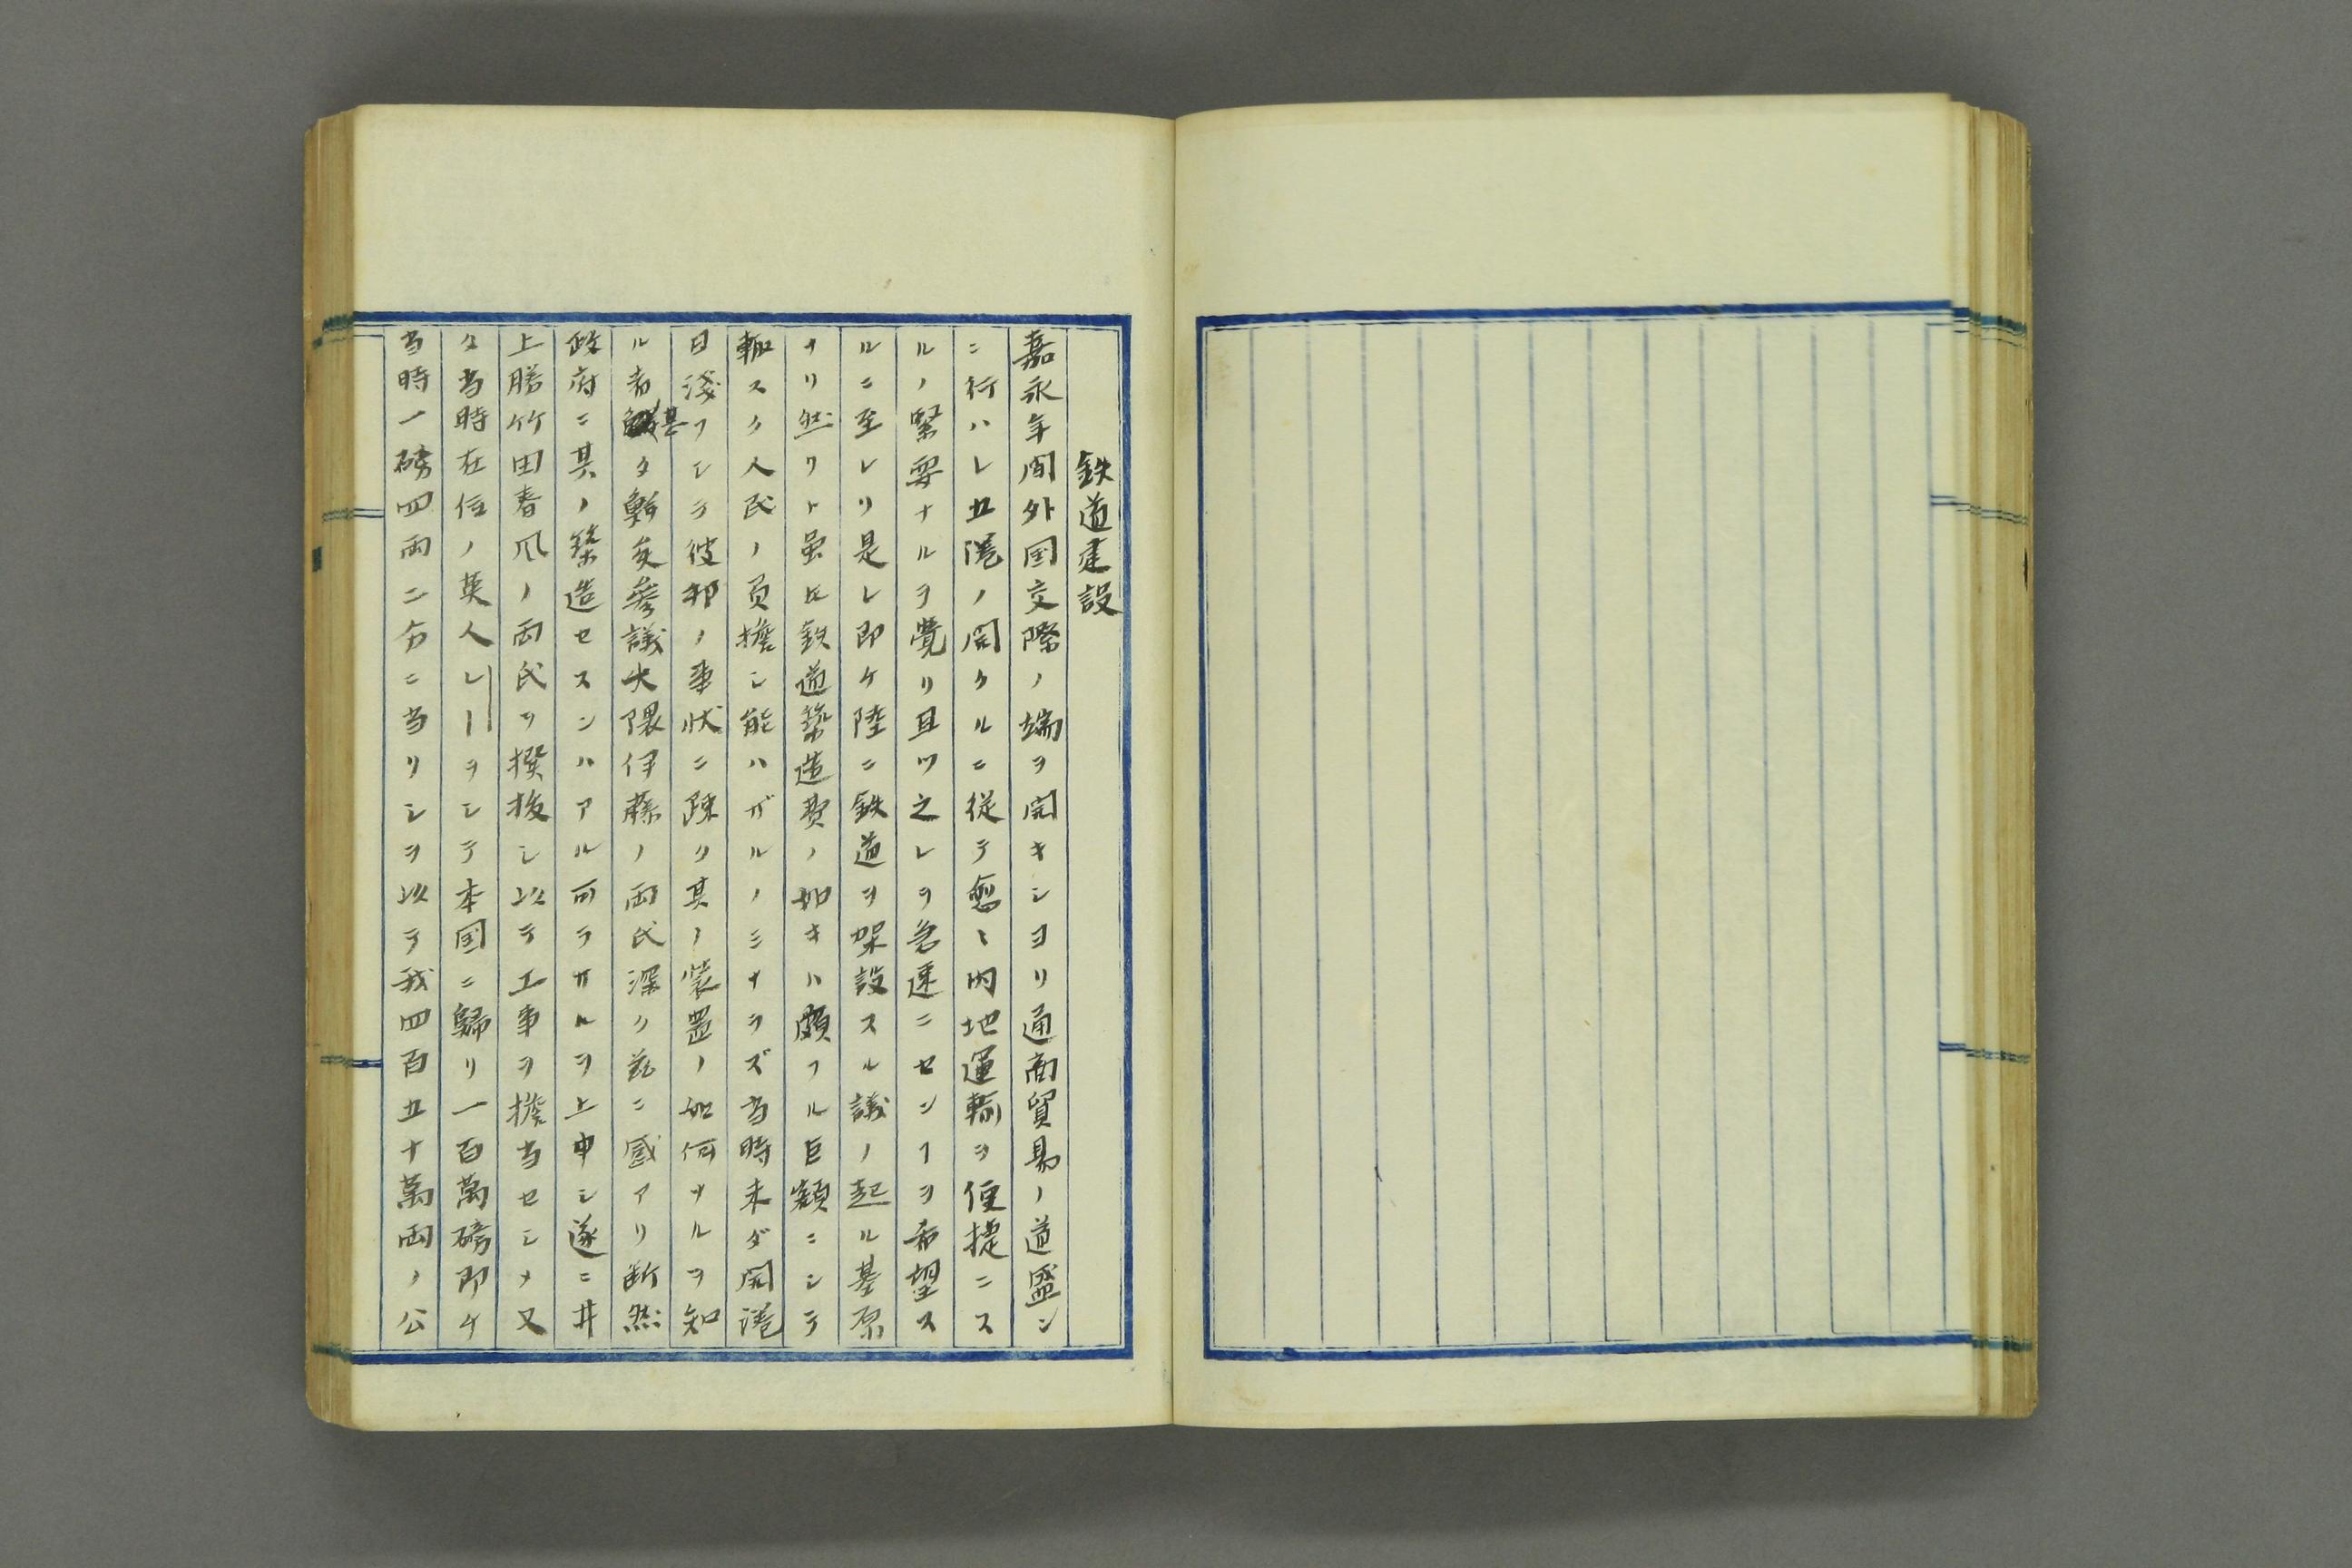 鉄道建設
嘉永年間外国交際ノ端ヲ開キシヨリ通商貿易ノ道盛ン
ニ行ハレ五港ノ開クルニ従テ愈〻内地運輸ヲ便捷ニス
ルノ緊要ナルヲ覺リ且ツ之レヲ急速ニセンヿヲ希望ス
ルニ至レリ是レ即ケ陸ニ鉄道ヲ架設スル議ノ起ル基原
ナリ然リト虽𪜈鉄道築造費ノ如キハ頗フル巨額ニシテ
輙スク人民ノ負擔シ能ハザルノミナラズ当時未ダ開港
日淺フシテ彼邦ノ事状ニ踈ク其ノ装置ノ如何ナルヲ知
ル者甚タ尠矣參議大隈伊藤ノ両氏深ク茲ニ感アリ断然
政府ニ其ノ築造セスンハアル可ラサルヲ上申シ遂ニ井
上勝竹田春風ノ両氏ヲ撰抜シ以テ工事ヲ擔当セシメ又
タ当時在住ノ英人レーヲシテ本国ニ歸リ一百萬磅即ケ
当時一磅四両二分ニ当リシヲ以テ我四百五十萬両ノ公